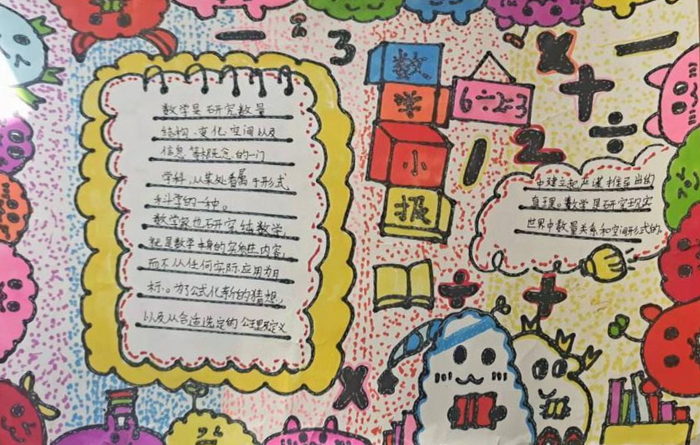 数
学
小
报
6÷2=3
3
1
2
数学是研究数量
结构、变化、空间以及
信息等概念的一门
学科,从某处看属于形式
科学的一种。
数学家也研究纯数学,
就是数学本身的实质性内容,
而不从任何实际应用为目
标。为了公式化新的猜想,
以及从合适选定的公理及定义
中建立起严谨推导出的
真理。数学是研究现实
世界中数量关系和空间形式的,